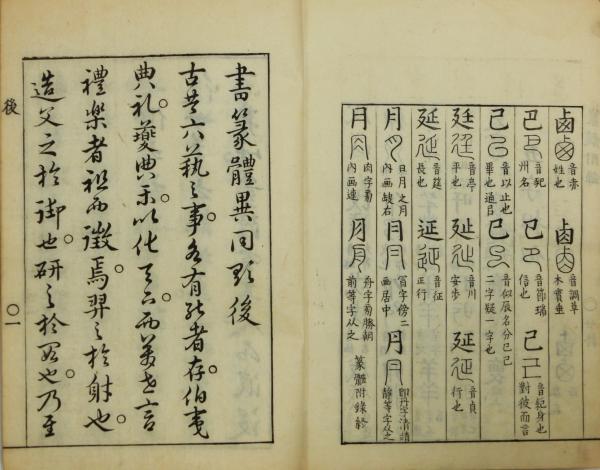 鹵 音赤姓也 鹵 音調草木實垂
巴 音䶕州名 㔾 音節瑞信也 己 音紀身也對彼而言
已 音以止也畢也通㠯 巳 音似辰名分巳已二字疑一字也
廷 音亭平也 㢟 音川安步 延 音貞行也
延 音筵長也 延 音征正行
月 日月之月內画缺右 冃 冐字傍二画居中 円 卽丹字清請靜等字从之
月 肉字旁內画連 月 舟字旁勝朝前等字从之 篆體附錄終
書篆體異同歌後
古者六藝之事各有能者存伯夷
典礼夔典樂以化天下而萬世言
禮樂者祖而徵焉羿之於射也
造父之於御也研之於
後
〇一